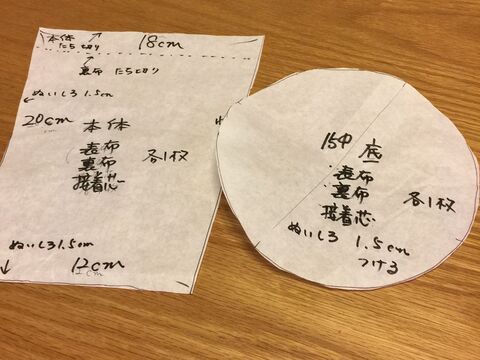 本体
たち切り
18cm
裏布 たち切り
ぬいしろ 1.5cm
20cm
本体
表布
裏布
接着芯
各1枚
ぬいしろ1.5cm
12cm
15φ 底
表布
裏布
接着芯
各1枚
ぬいしろ 1.5cm
つける